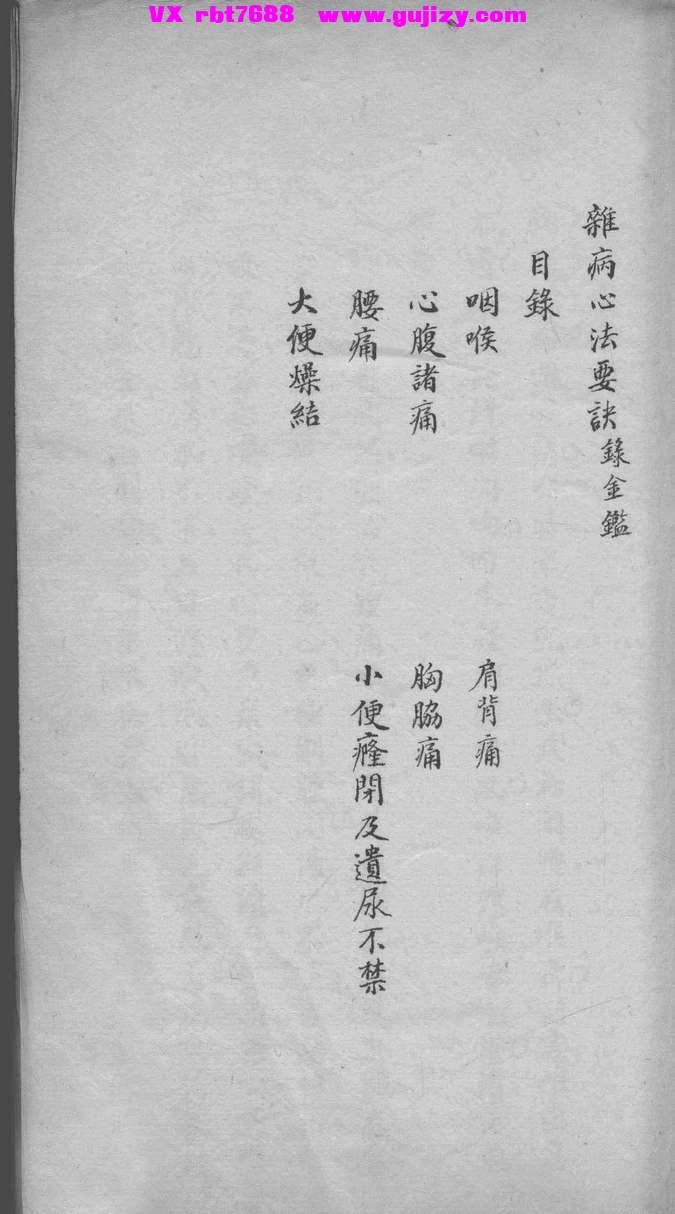 VX rbt7688 www.gujizy.com
雜病心法要訣錄金鑑
目錄
咽喉 肩背痛
心腹諸痛 胸脇痛
腰痛 小便癃閉及遺尿不禁
大便燥結